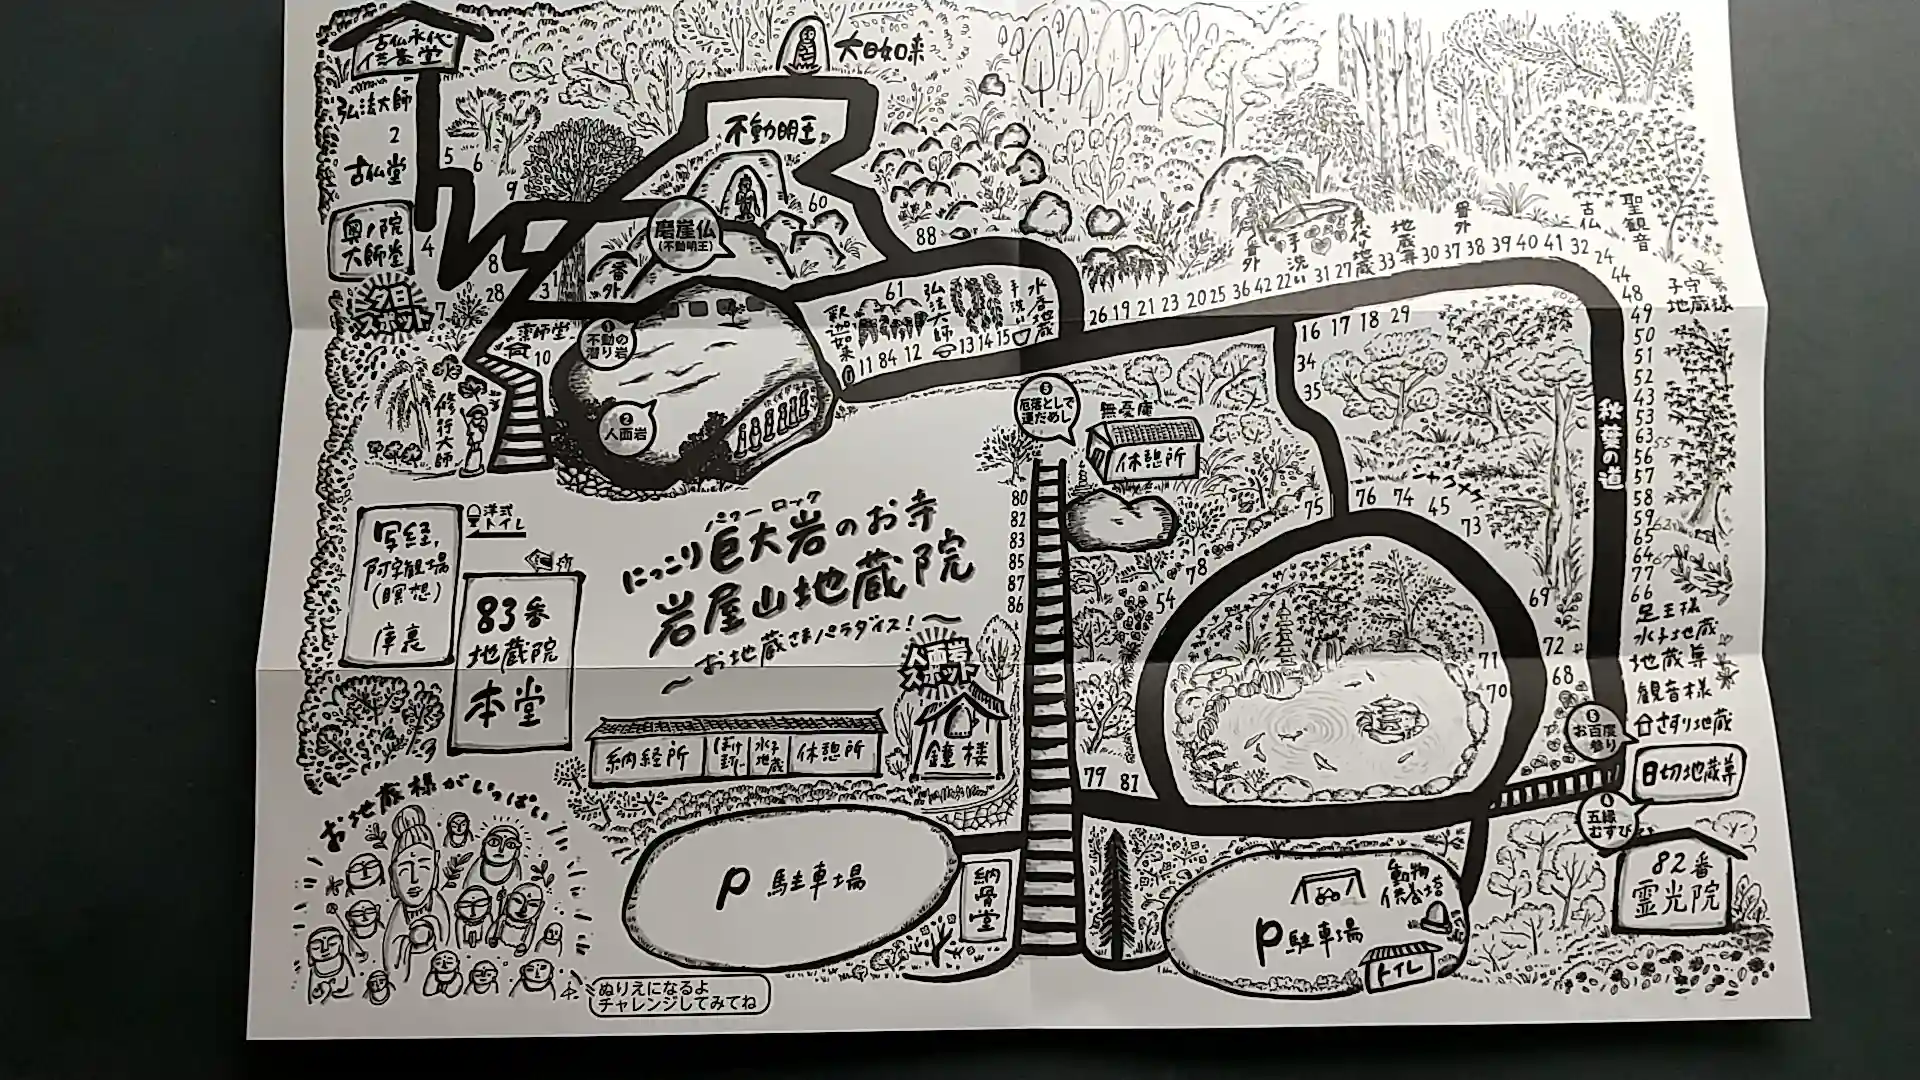 古仏永代
供養堂
大日如来
弘法大師
2
古仏堂
不動明王
5
6
9
60
88
奥ノ院
大師堂
4
8
7
28
3
番外
磨崖仏
(不動明王)
薬師堂
10
不動の岩
潜り
人面岩
61
釈迦如来
弘法大師
手洗い
水子地蔵
11 84 12
13 14 15
修行大師
番外
手洗
身代り地蔵
地蔵尊
番外
古仏
聖観音
26 19 21 23 20 25 36 42 22 31 27 33 30 37 38 39 40 41 32 24
44
48
子守
地蔵様
49
50
51
52
43
53
63
56
57
58
59
65
64
77
66
足王様
水子地蔵
地蔵尊
観音様
さすり地蔵
16 17 18 29
34
35
秋葉の道
シャクナゲ
75
76 74 45 73
69
72
71
68
70
厄落としで
運だめし
無憂庵
休憩所
80
82
83
85
87
86
78
54
79 81
洋式
トイレ
写経,
阿字観場
(瞑想)
庫裏
83番
地蔵院
本堂
パワーロック
にっこり巨大岩のお寺
岩屋山地蔵院
～お地蔵さまパラダイス!～
人面岩
スポット
納経所
水子
地蔵
休憩所
鐘楼
お百度
参り
日切地蔵尊
五縁
むすび
82番
霊光院
お地蔵様がいっぱい
P 駐車場
納骨堂
動物
供養塔
P 駐車場
トイレ
ぬりえになるよ
チャレンジしてみてね